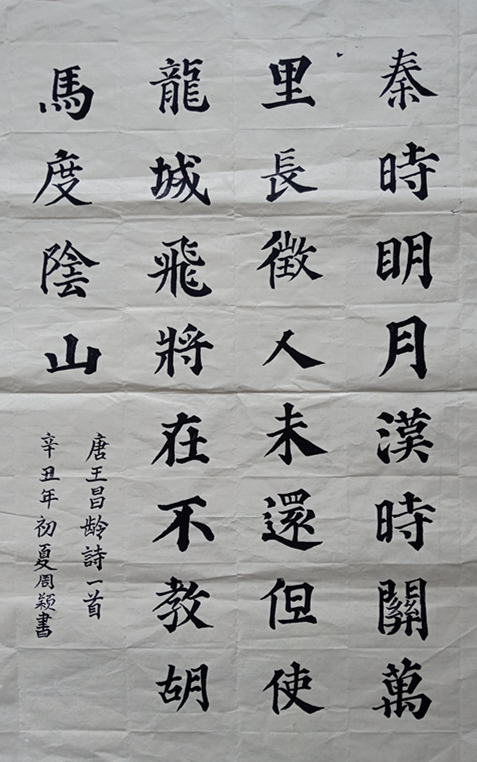 秦時明月漢時關萬
里長徵人未還但使
龍城飛將在不教胡
馬度陰山
唐王昌龄詩一首
辛丑年初夏周颖書